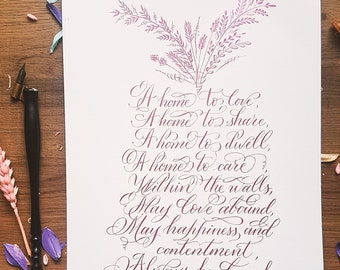 A home to love,
A home to share,
A home to dwell,
A home to care;
Within the walls,
May love abound,
May happiness, and
contentment,
Always